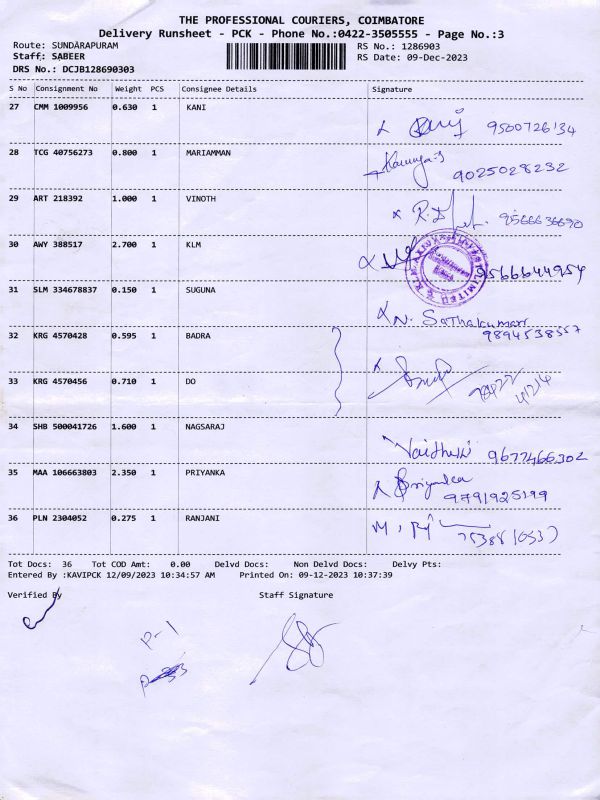 THE PROFESSIONAL COURIERS, COIMBATORE
Delivery Runsheet - PCK - Phone No.:0422-3505555 - Page No.:3
Route: SUNDARAPURAM RS No.: 1286903
Staff: SABEER RS Date: 09-Dec-2023
DRS No.: DCJB128690303
S No Consignment No Weight PCS Consignee Details Signature
27 CMM 1009956 0.630 1 KANI
9500726134
28 TCG 40756273 0.800 1 MARIAMMAN
9025028232
29 ART 218392 1.000 1 VINOTH
9566636690
30 AWY 388517 2.700 1 KLM
9566644954
31 SLM 334678837 0.150 1 SUGUNA
N. Sathakumar
9894538557
32 KRG 4570428 0.595 1 BADRA
33 KRG 4570456 0.710 1 DO
34 SHB 500041726 1.600 1 NAGSARAJ
9677466302
35 MAA 106663803 2.350 1 PRIYANKA
Priyanka
9791925199
36 PLN 2304052 0.275 1 RANJANI
Tot Docs: 36 Tot COD Amt: 0.00 Delvd Docs: Non Delvd Docs: Delvy Pts:
Entered By :KAVIPCK 12/09/2023 10:34:57 AM Printed On: 09-12-2023 10:37:39
Verified By Staff Signature
P-1